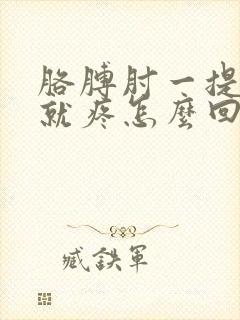 胳膊肘一提
就疼怎麼回
臧鉄軍